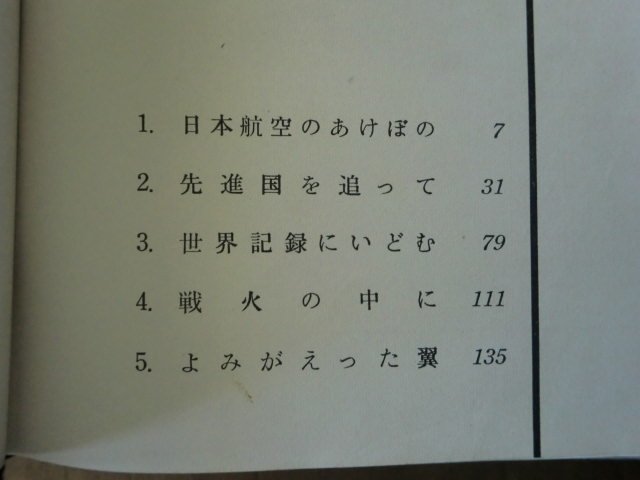 1. 日本航空のあけぼの 7
2. 先進国を追って 31
3. 世界記録にいどむ 79
4. 戦火の中に 111
5. よみがえった翼 135